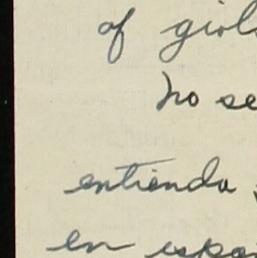 of girls
no se
entienda
en espa